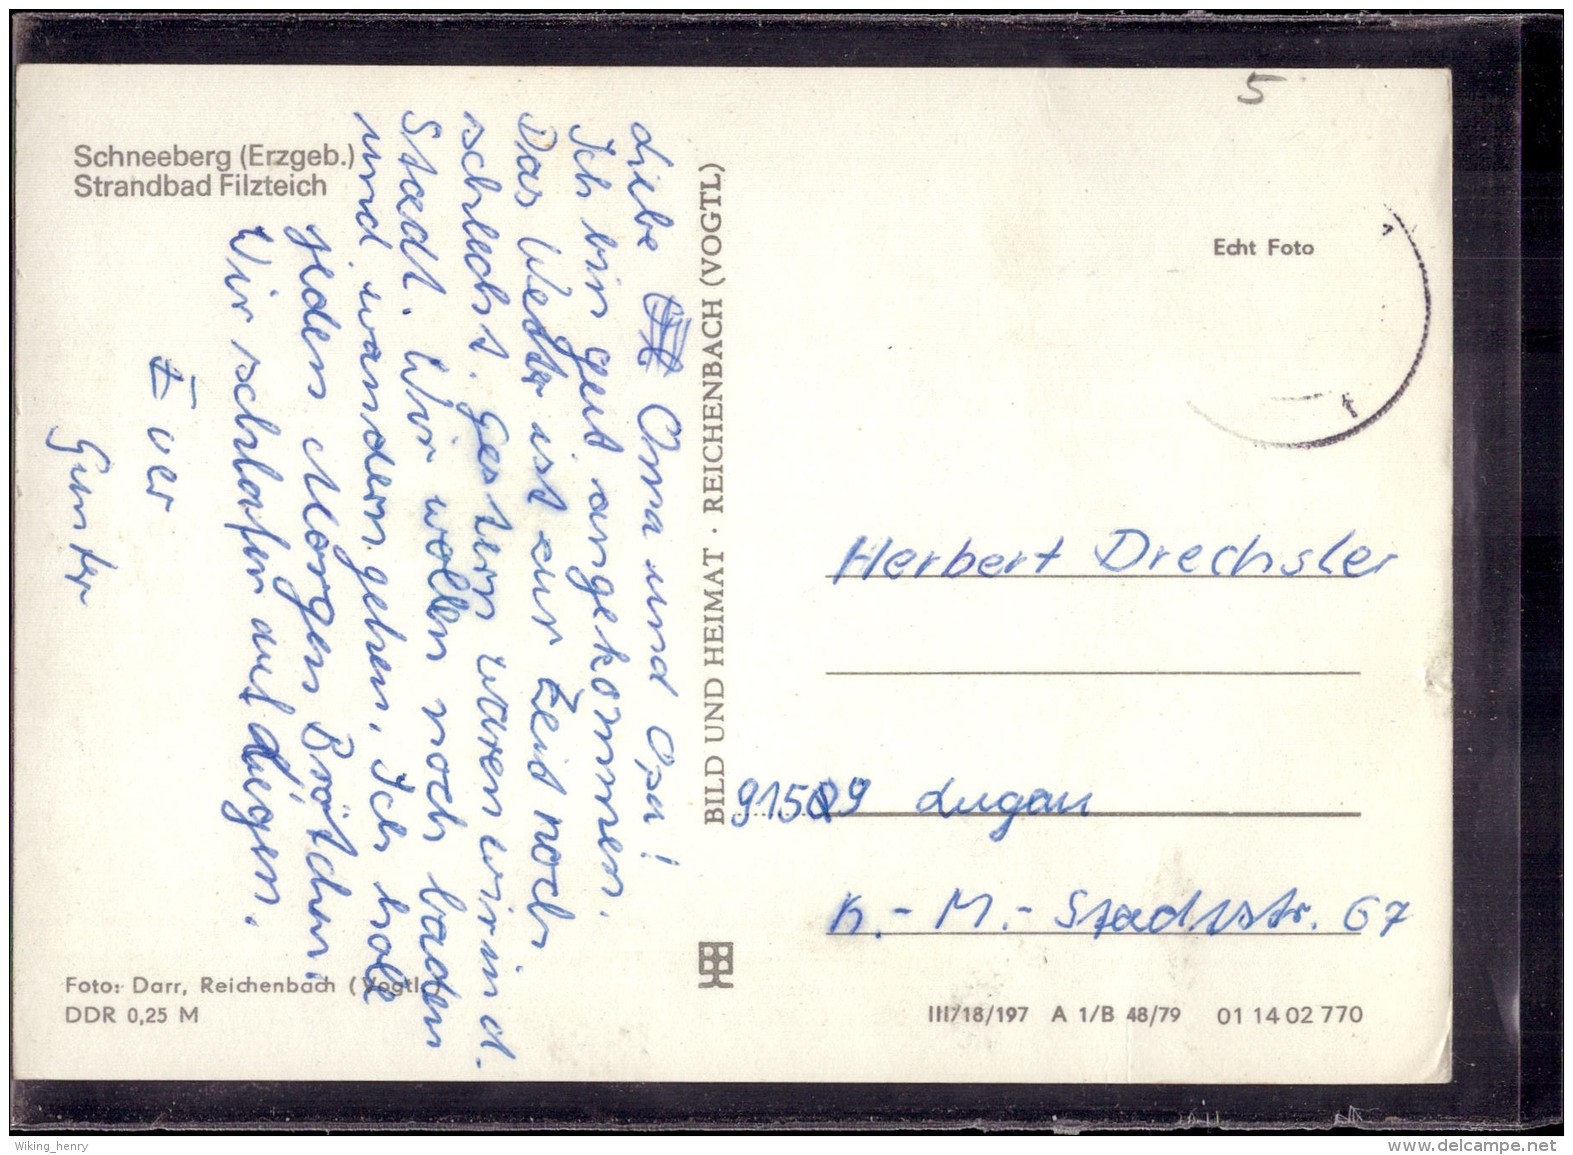 Schneeberg (Erzgeb.)
Strandbad Filzteich
liebe Oma und Opa!
Ich bin gut angekommen.
Das Wetter ist zur Zeit noch
schlecht. Gestern waren wir in d.
Stadt. Wir wollen noch baden
und wandern gehen. Ich hole
jeden Morgen Brötchen.
Wir schlafen auf Liegen.
Euer
Gunter
Foto: Darr, Reichenbach (Vogtl.)
DDR 0,25 M
BILD UND HEIMAT · REICHENBACH (VOGTL)
5
Echt Foto
Herbert Drechsler
9159 Lugau
K.-M.-Stadtstr. 67
III/18/197 A 1/B 48/79 01 14 02 770
Wiking_henry
www.delcampe.net